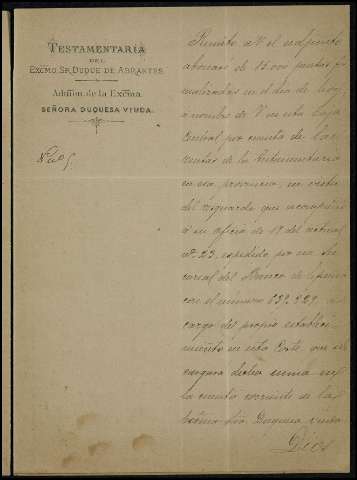 TESTAMENTARÍA
DEL
EXCMO. SR. DUQUE DE ABRANTES.
Admon. de la Excma.
SEÑORA DUQUESA VIUDA.
Núº 5.
Remito á V. el adjunto
abonaré de 15.000 pesetas
realizadas en el día de hoy
á nombre de V. en esta Caja
Central por cuenta de las
rentas de la Testamentaría
en esa provincia, en
del resguardo que
á su oficio de 18 del actual
nº 23, expedido por esa Su-
cursal del Banco de España
con el número 639.529, á
cargo del propio estableci-
miento en esta Corte, con
dicha suma en
la cuenta corriente de la
Excma. Sra. Duquesa viuda.
Dios